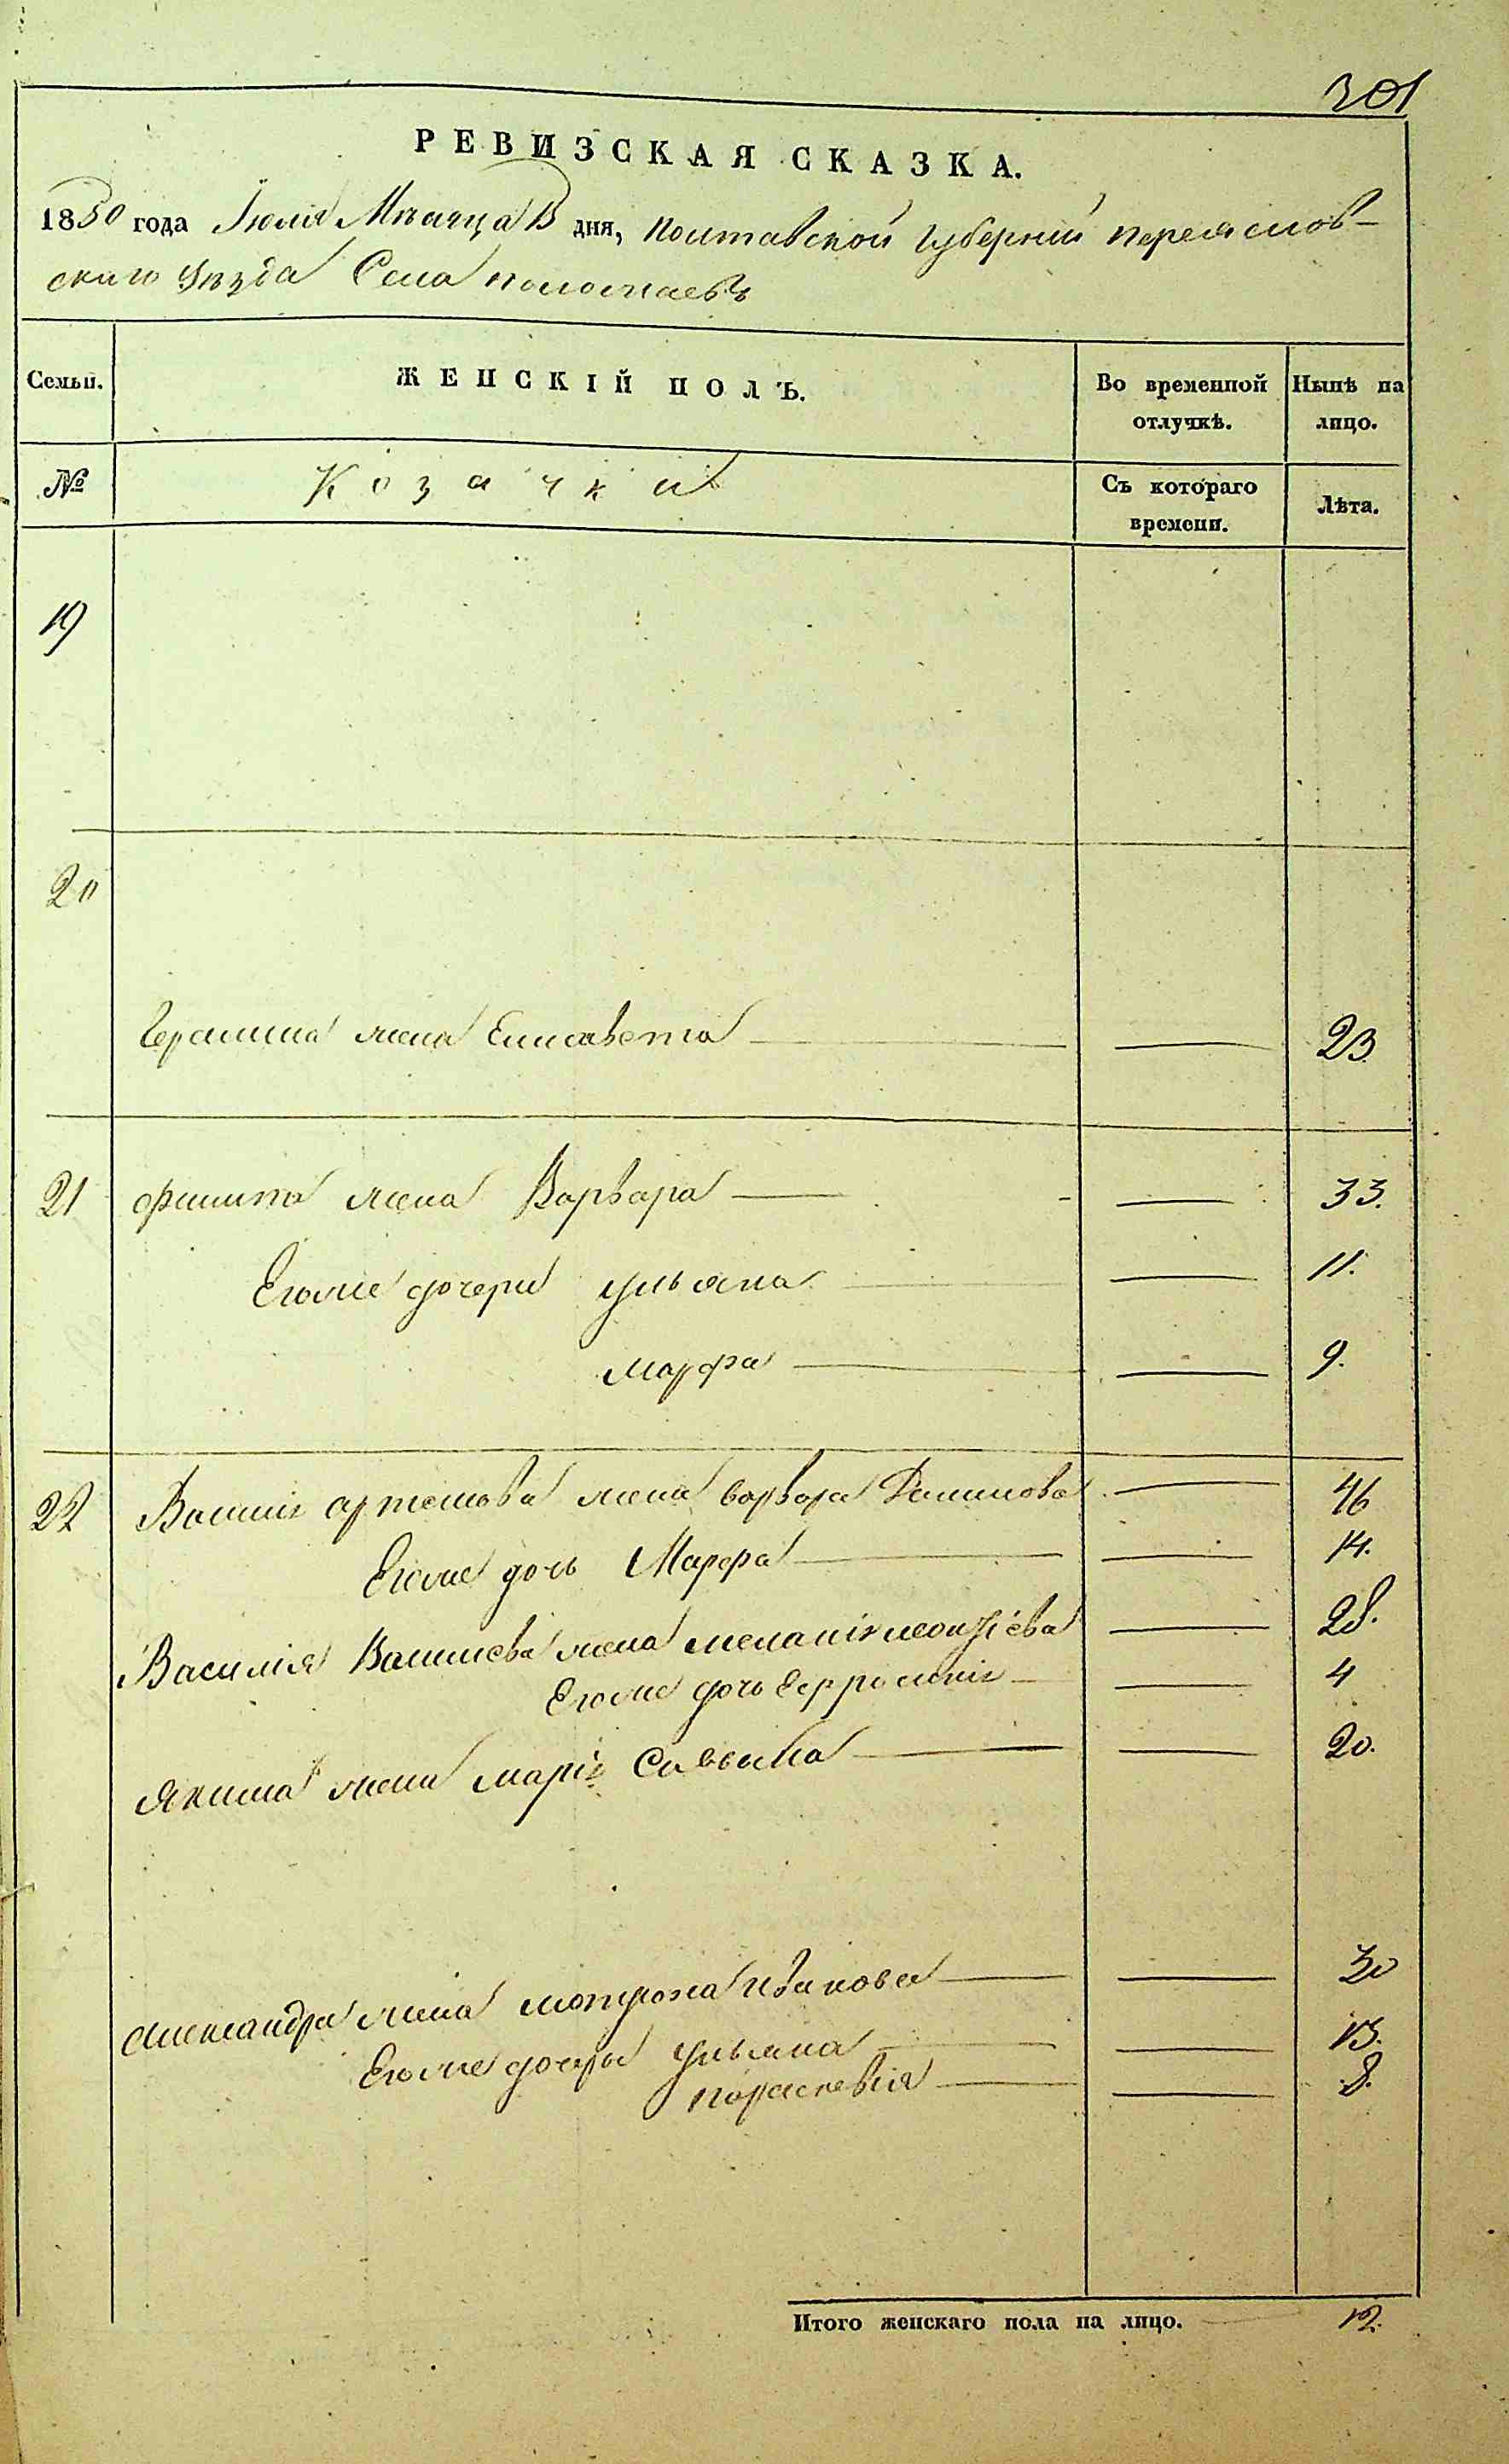 301
РЕВИЗСКАЯ СКАЗКА.
1850 года Іюля Мѣсяца 13 дня, Полтавской Губерніи Переяслов-
скаго Уѣзда Села
Семьи. ЖЕНСКІЙ ПОЛЪ. Во временной отлучкѣ. Нынѣ на лицо.
№ Козачки Съ котораго времени. Лѣта.
19
20
Герасима жена Елисавета — — 23
21 Филипа жена Варвара — — 33.
Егоже дочери Ульяна — — 11.
Марфа — — 9.
22 артемова жена варвара — 46
Егоже дочь Марфа — — 14.
Василія жена меланія — 28.
Егоже дочь Евфросинія — — 4
Якима жена марія Саввина — — 20.
Александра жена мотрона Иванова — — 30
Егоже дочери Ульяна — — 13.
Параскевія — — 8.
Итого женскаго пола на лицо. — 12.